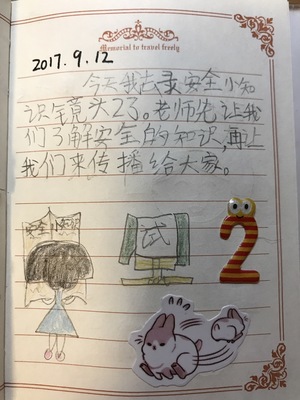 2017.9.12
Memorial to travel freely
今天我去录安全小知
识竟头23。老师先让我
们了解安全的知识,再让
我们来传播给大家。
安全小知识
试
2